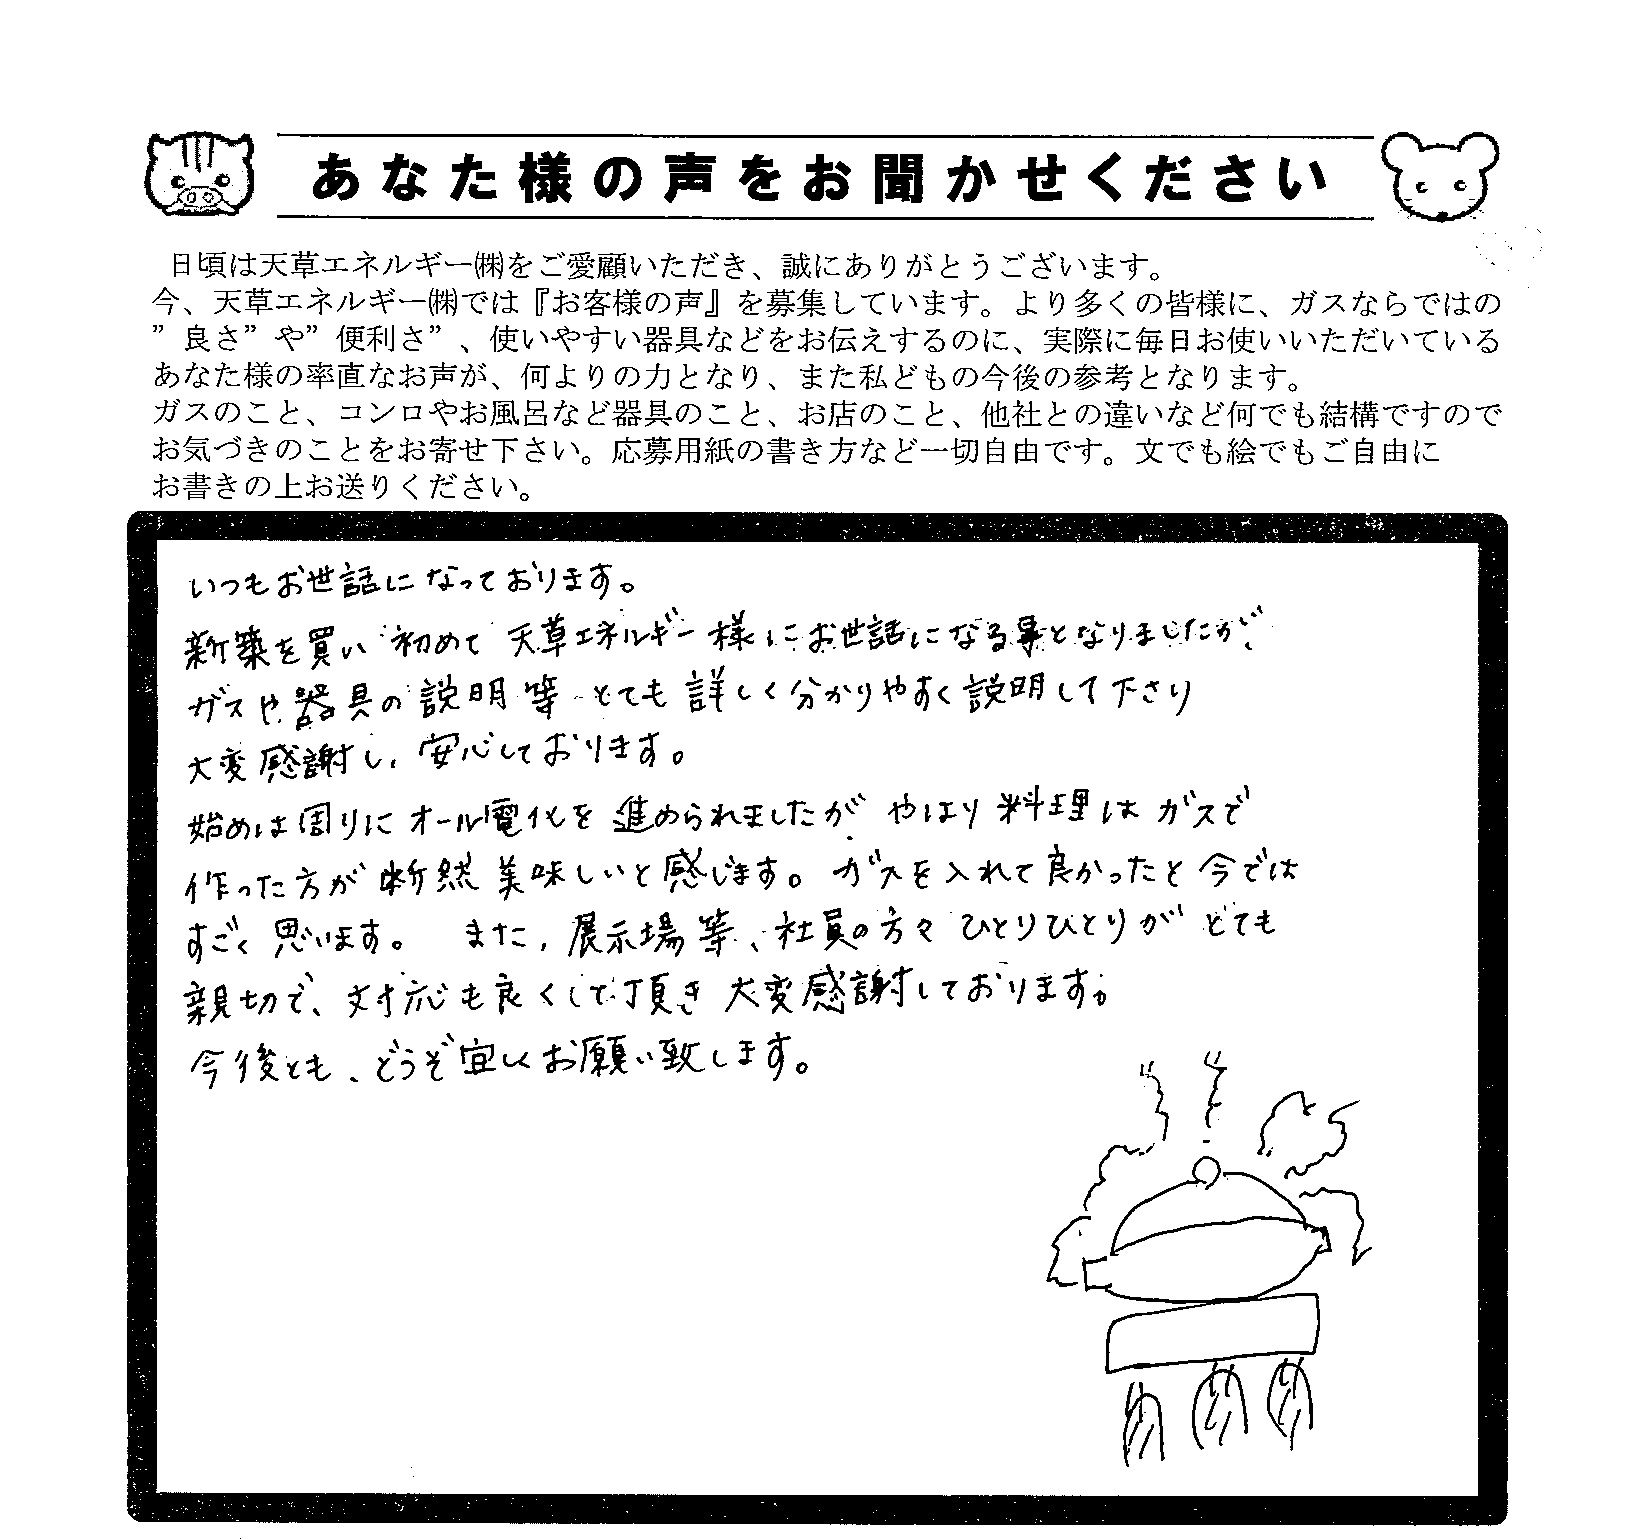 あなた様の声をお聞かせください
日頃は天草エネルギー㈱をご愛顧いただき、誠にありがとうございます。
今、天草エネルギー㈱では『お客様の声』を募集しています。より多くの皆様に、ガスならではの
”良さ”や”便利さ”、使いやすい器具などをお伝えするのに、実際に毎日お使いいただいている
あなた様の率直なお声が、何よりの力となり、また私どもの今後の参考となります。
ガスのこと、コンロやお風呂など器具のこと、お店のこと、他社との違いなど何でも結構ですので
お気づきのことをお寄せ下さい。応募用紙の書き方など一切自由です。文でも絵でもご自由に
お書きの上お送りください。
いつもお世話になっております。
新築を買い初めて天草エネルギー様にお世話になる事となりましたが、
ガスや器具の説明等とても詳しく分かりやすく説明して下さり
大変感謝し、安心しております。
始めは周りにオール電化を進められましたが、やはり料理はガスで
作った方が断然美味しいと感じます。ガスを入れて良かったと今では
すごく思います。また、展示場等、社員の方々ひとりひとりがとても
親切で、対応も良くして頂き大変感謝しております。
今後とも、どうぞ宜しくお願い致します。